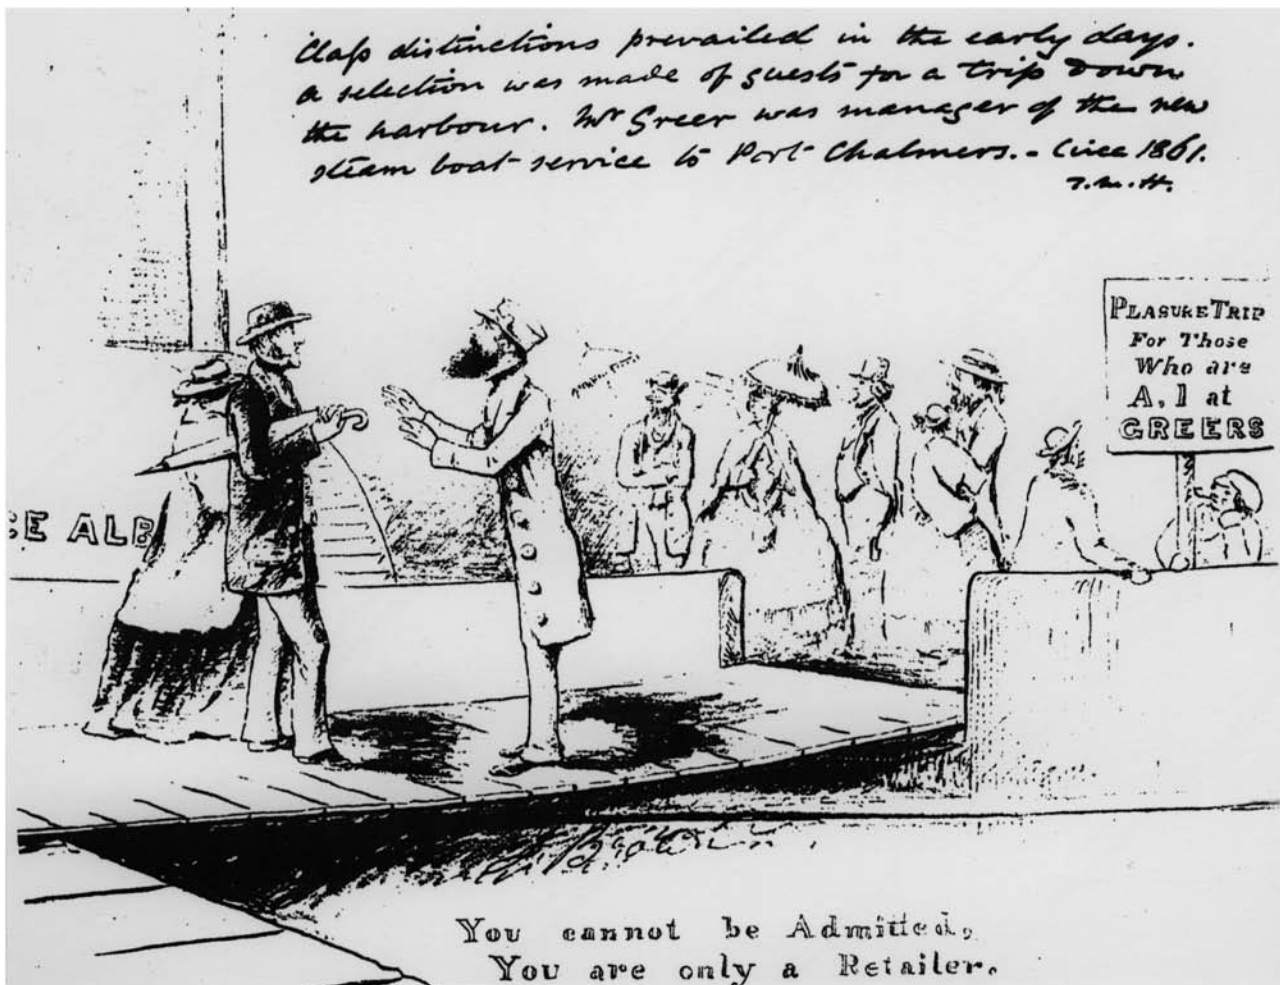 Class distinctions prevailed in the early days.
a selection was made of guests for a trip down
the harbour. Mr Greer was manager of the new
steam boat service to Port Chalmers. - Circa 1861.
T.M.H.
PLASURE TRIP
For Those
Who are
A,1 at
GREERS
SE ALB
You cannot be Admitted,
You are only a Retailer.